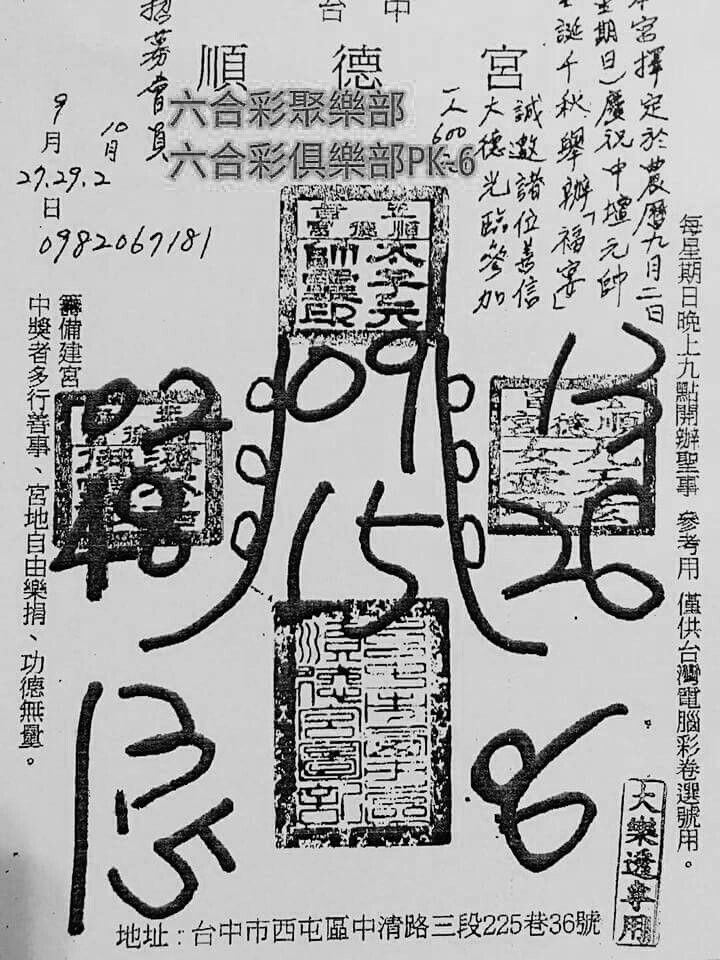 台中
順德宮
六合彩聚樂部
六合彩俱樂部PK-6
本宮擇定於農曆九月二日
星期日)慶祝中壇元帥
聖誕千秋,舉辦「福宴」
誠邀諸位善信
大德光臨參加
一人600元
招募會員
9月
10月
27.29.2
日
0982069181
每星期日晚上九點開辦聖事 參考用 僅供台灣電腦彩卷選號用。
籌備建宮
中獎者多行善事、宮地自由樂捐、功德無量。
太子元
帥靈印
02
09
13
15
26
13
15
大樂透專用
地址:台中市西屯區中清路三段225巷36號